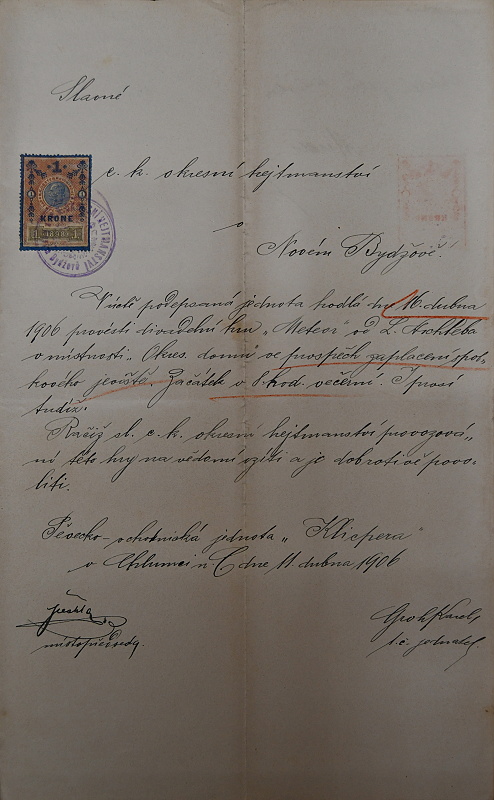 Slavné
1
KRONE
1 1898 1
c. k. okresní hejtmanství
v
Novém Bydžově.
Vúctě podepsaná jednota hodlá dne 16. dubna
1906 provésti divadelní hru „Meteor" od L.
v místnosti „Okres. domu" ve prospěch zaplacení spol-
kového jeviště. Začátek v 8 hod. večerní. I prosí
tudíž:
Račiž sl. c. k. okresní hejtmanství provozová„
ní této hry na vědomí vzíti a je dobrotivě povo-
liti.
Pěvecko-ochotnická jednota „Klicpera"
v Chlumci n. C dne 11. dubna 1906
místopředseda.
Groh Karel
t. č. jednatel.